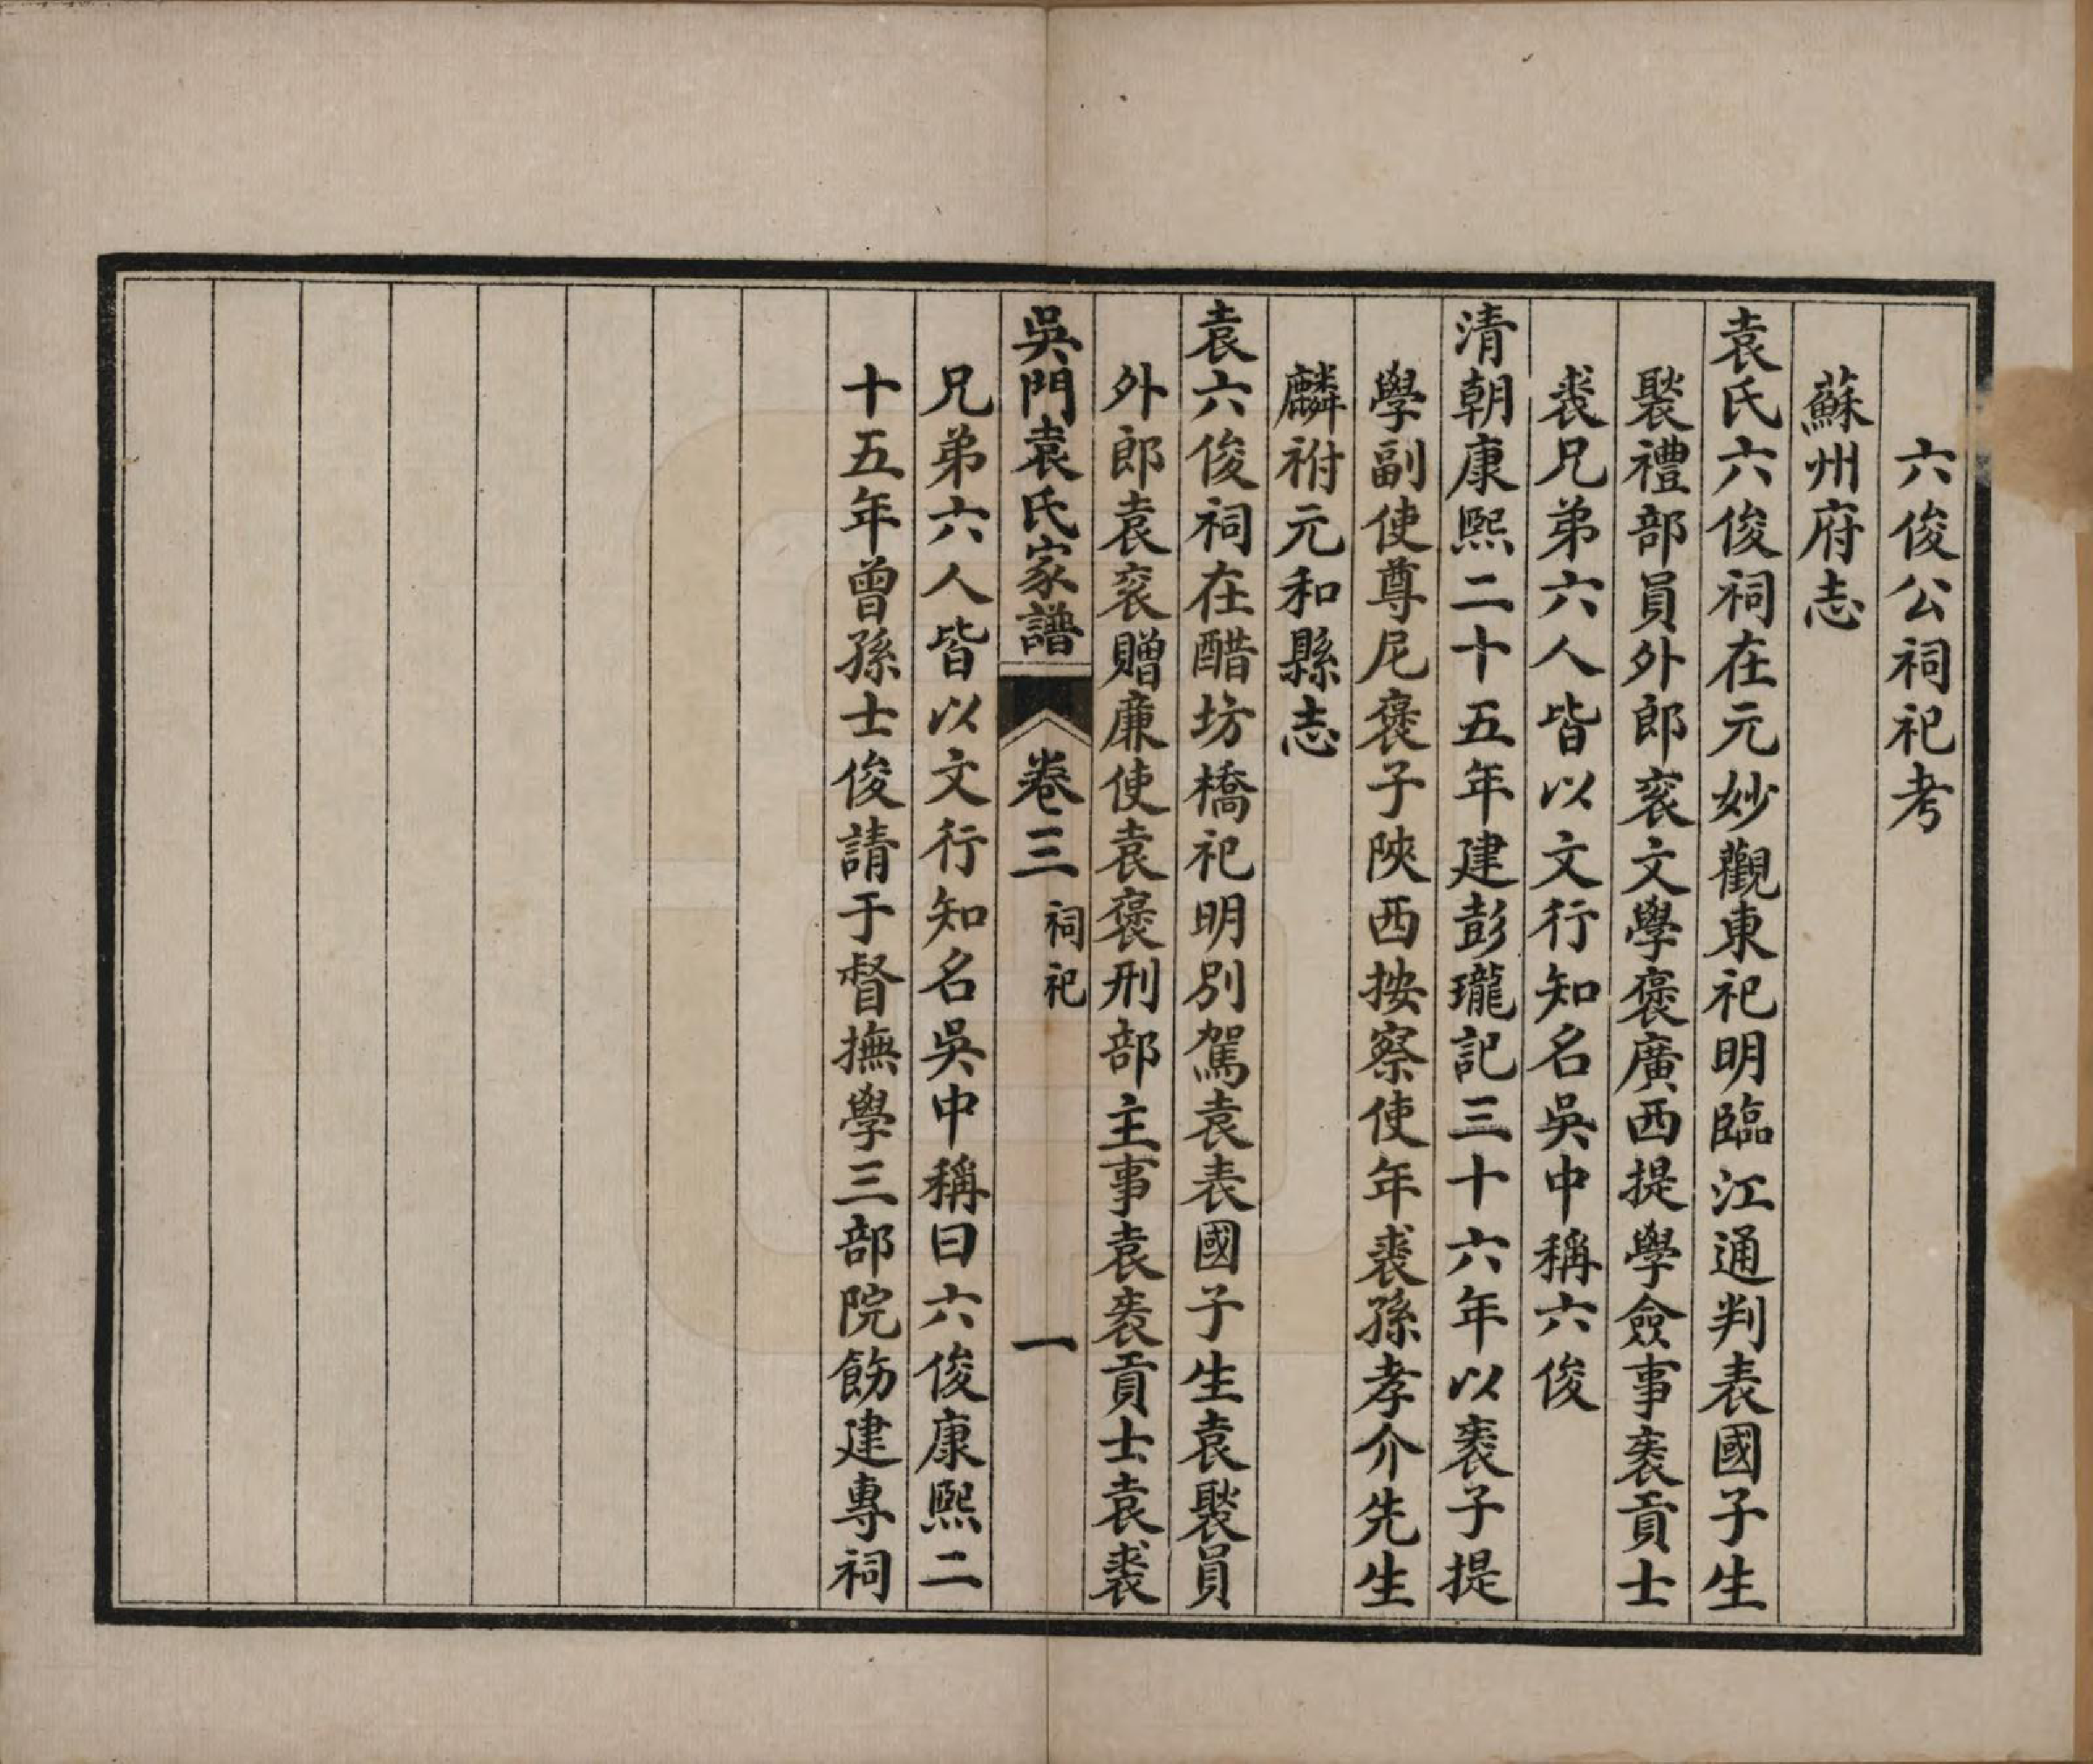 六俊公祠祀考
蘇州府志
袁氏六俊祠在元妙觀東祀明臨江通判表國子生
褧禮部員外郎袞文學褒廣西提學僉事袠貢士
裘兄弟六人皆以文行知名吳中稱六俊
清朝康熙二十五年建彭瓏記三十六年以袠子提
學副使尊尼褒子陝西按察使年裘孫孝介先生
麟祔元和縣志
袁六俊祠在醋坊橋祀明別駕袁表國子生袁褧員
外郎袁袞贈廉使袁褒刑部主事袁袠貢士袁裘
吳門袁氏家譜 卷三 祠祀 一
兄弟六人皆以文行知名吳中稱曰六俊康熙二
十五年曾孫士俊請于督撫學三部院飭建專祠